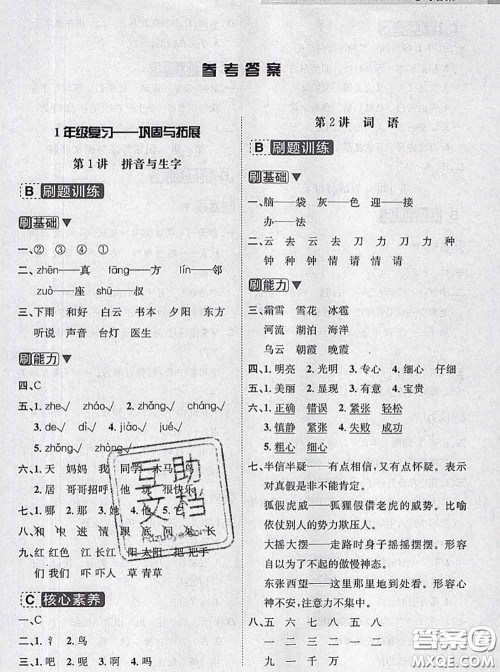 参考答案
1年级复习——巩固与拓展
第1讲 拼音与生字
B 刷题训练
刷基础
一、② ③ ④ ①
二、zhēn——真 fāng——方 lín——邻
zuò——座 shū——叔
三、下雨 和好 白云 书本 夕阳 东方
听说 声音 台灯 医生
刷能力
四、C
五、1. zhe√ 2. zháo√ 3. zhǎng√
3. de√ dì√ 4. zhǒng√ cháng√
5. zhòng√ háng√
六、1. 天 妈妈 我 同学
2. 居 哥哥招呼 他 现 很快乐
七、1. 哪 那 2. 已 己
八、和 中 进 情 跟 底 间 处 长
九、红 红红的 江 长江 阳 太阳 把 把手
们 我们 吓 吓人 草 青草
C 核心素养
一、C
二、1. 话 2. 清 3. 鸟
三、1. 吧 2. 呢 3. 啊 4. 啊 5. 吗
第2讲 词语
B 刷题训练
刷基础
一、脑——袋 灰——色 迎——接
办——法
二、云 去 云 去 刀 力 刀 力
钟 种 钟 种 情 晴 情 晴
刷能力
三、霜雪 雪花 冰雹
河流 湖泊 海洋
乌云 朝霞 晚霞
四、1. 明亮 2. 光明 3. 专心 4. 细心 仔细
五、1. 美丽 2. 显现 3. 有意 4. 宝贵
六、1. 正确 错误 2. 紧张 轻松
3. 镇静 紧张 4. 失败 成功
5. 粗心 细心
七、半信半疑——有点相信，又有点怀疑。表示
对真假是非不能肯定。
狐假虎威——狐狸假借老虎的威势。比喻
依仗别人的势力欺压人。
大摇大摆——走路时身子摇摇摆摆。形容
自以为了不起的傲慢神态。
东张西望——这里看看，那里看看。形容心
神不安，注意力不集中。
八、五
一